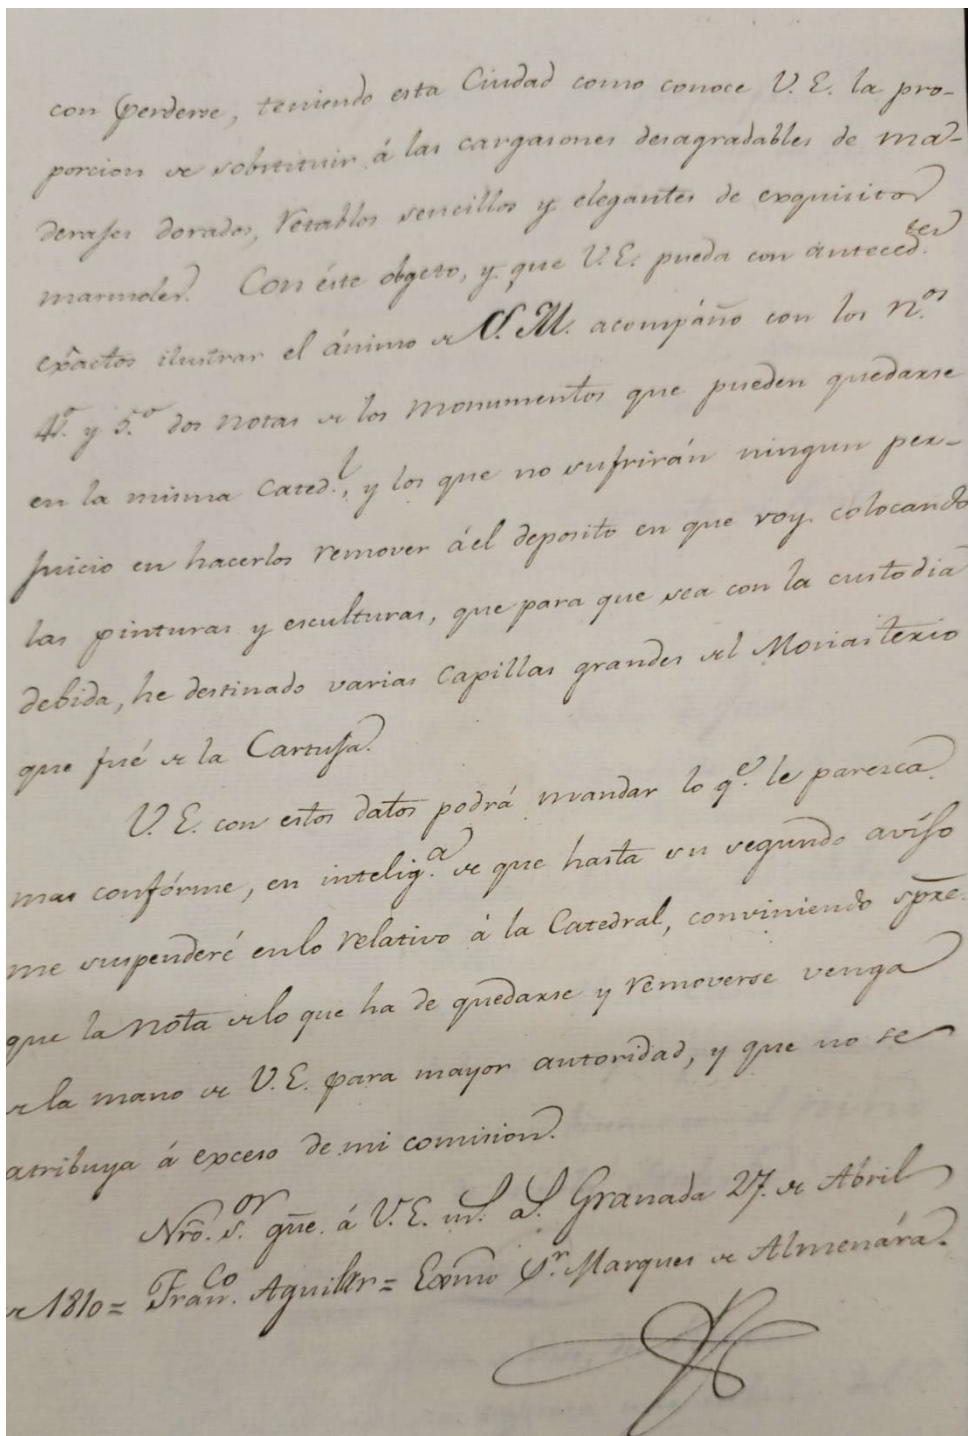 con perderse, teniendo esta Ciudad como conoce V. E. la pro-
porcion de sobstituir á las cargasones desagradables de ma-
derages dorados, retablos sencillos y elegantes de exquisitos
marmoles. Con éste obgeto, y que V. E. pueda con anteced.tes
exâctos ilustrar el ánimo de S. M. acompáño con los n.os
4.º y 5.º dos notas de los monumentos que pueden quedarse
en la misma Cated.l, y los que no sufrirán ningun per-
juicio en hacerlos remover á el deposito en que voy colocando
las pinturas y esculturas, que para que sea con la custodia
debida, he destinado varias Capillas grandes del Monasterio
que fué de la Cartuja.
V. E. con estos datos podrá mandar lo q.e le paresca
mas confórme, en intelig.a de que hasta su segundo avíso
me suspenderé en lo relativo á la Catedral, conviniendo spre.
que la nota de lo que ha de quedarse y removerse venga
de la mano de V. E. para mayor autoridad, y que no se
atribuya á exceso de mi comision.
Nro. S.or gue. á V. E. m.s a.s Granada 27. de Abril
de 1810 = Fran.co Aguilar = Exmo S.r Marques de Almenára.